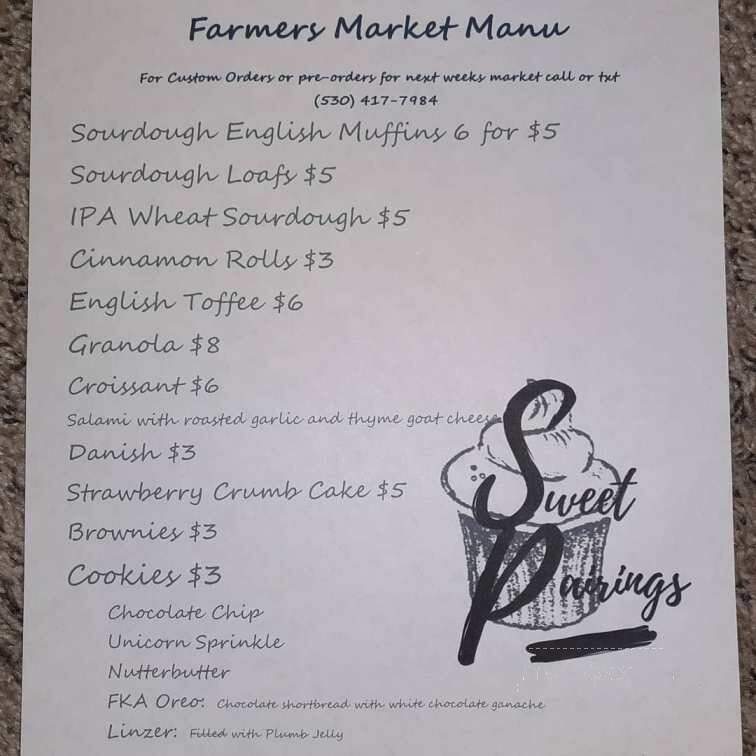 Farmers Market Manu
For Custom Orders or pre-orders for next weeks market call or txt
(530) 417-7984
Sourdough English Muffins 6 for $5
Sourdough Loafs $5
IPA Wheat Sourdough $5
Cinnamon Rolls $3
English Toffee $6
Granola $8
Croissant $6
Salami with roasted garlic and thyme goat cheese
Danish $3
Strawberry Crumb Cake $5
Brownies $3
Cookies $3
Chocolate Chip
Unicorn Sprinkle
Nutterbutter
FKA Oreo: Chocolate shortbread with white chocolate ganache
Linzer: Filled with Plumb Jelly
Sweet
Pairings